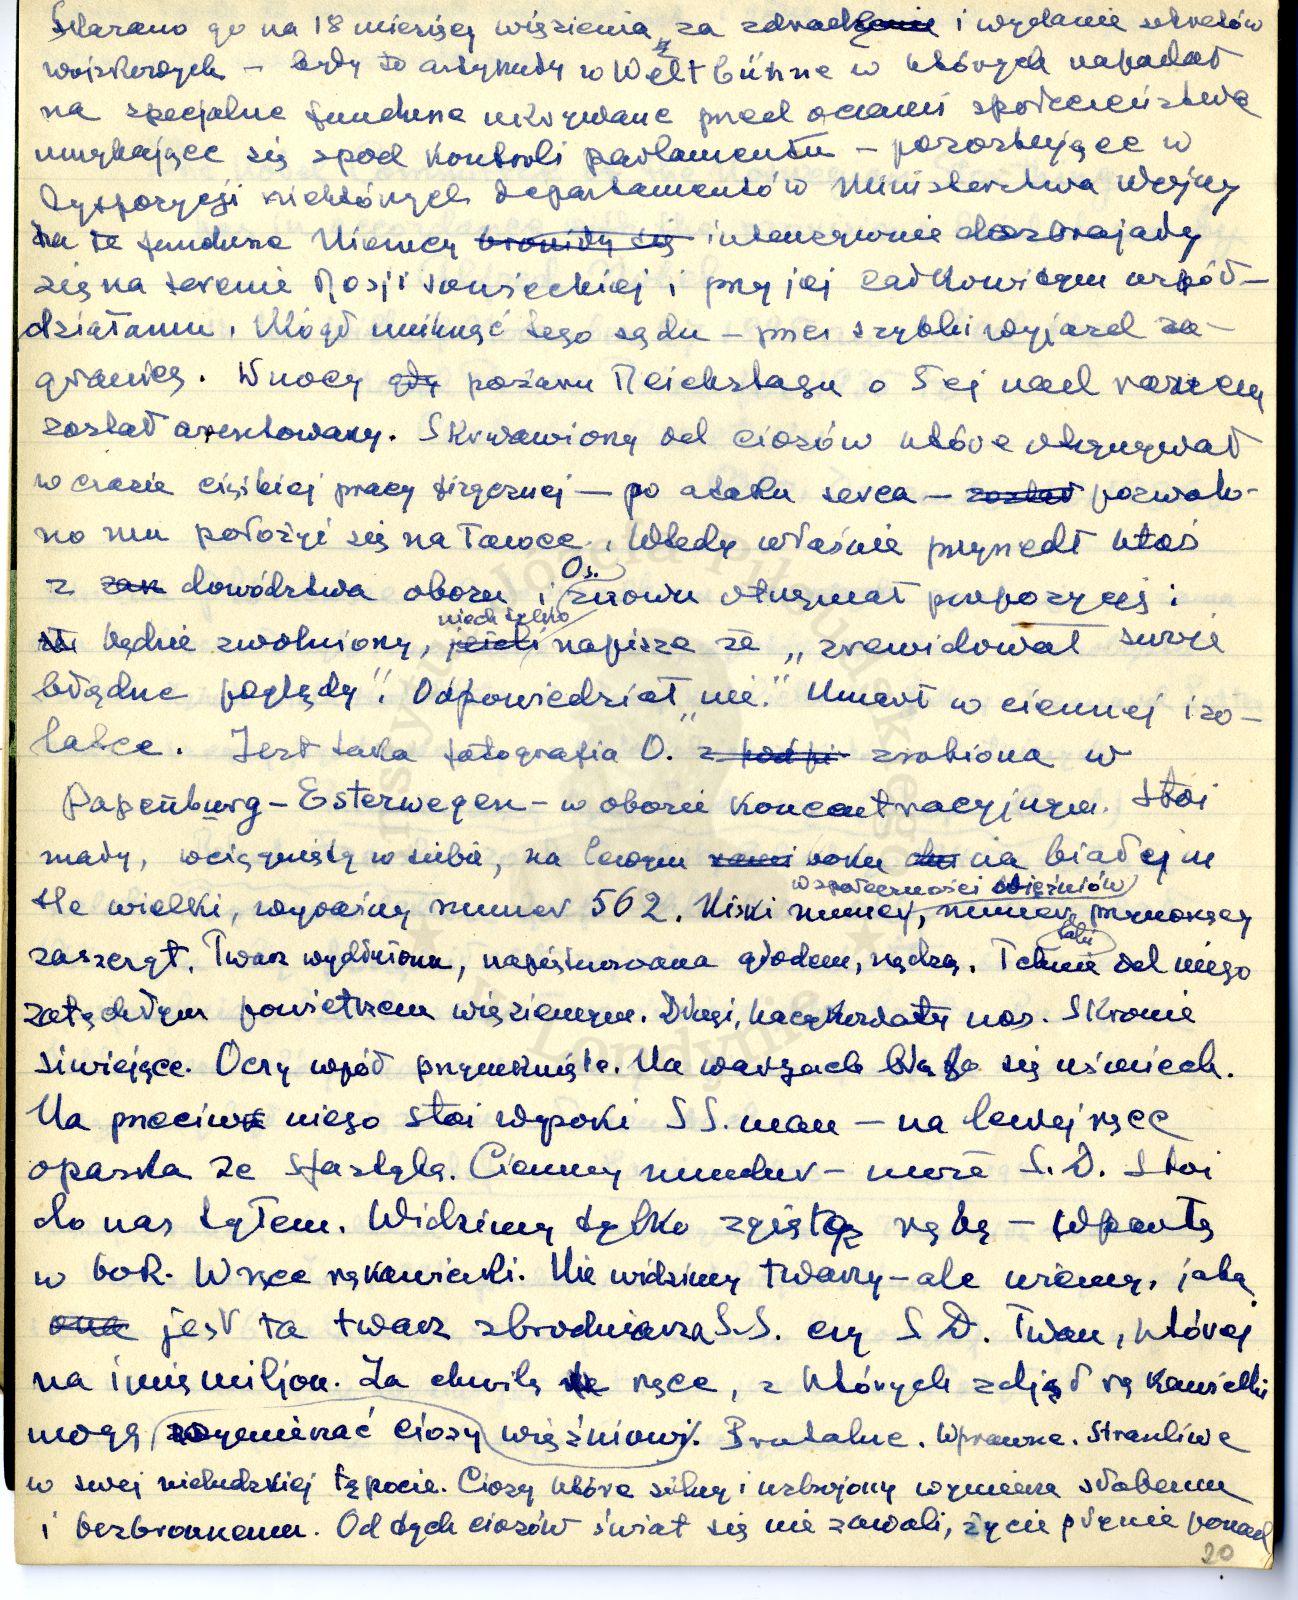 Skazano go na 18 miesięcy więzienia za zdradę i wydanie sekretów
wojskowych – były to artykuły w Weltbühne w których napadał
na specjalne fundusze ukrywane przed oczami społeczeństwa
umykające się spod kontroli parlamentu – pozostające w
dyspozycji niektórych departamentów Ministerstwa Wojny
za te fundusze Niemcy broniły się intensywnie dozbrajały
się na terenie Rosji sowieckiej i przy jej całkowitym współ-
działaniu. Mógł uniknąć tego sądu – przez szybki wyjazd za-
granicę. W nocy gdy pożaru Reichstagu o 5ej nad ranem
został aresztowany. Skrwawiony od ciosów które otrzymywał
w czasie ciężkiej pracy fizycznej – po ataku serca – został pozwolo-
no mu położyć się na ławce. Wtedy właśnie przyszedł ktoś
z dowództwa obozu i Os. znowu otrzymał propozycję i
będzie zwolniony, jeżeli niech tylko napisze że „zrewidował swoje
błędne poglądy". Odpowiedział „nie." Umarł w ciemnej izo-
latce. Jest taka fotografia O. z zrobiona w
Papenburg – Esterwegen – w obozie koncentracyjnym. Stoi
mały, wciągnięty w siebie, na lewym boku na białym
tle wielki, wyraźny numer 562. Niski numer, numer, przynoszący
współczesności więźniów
zaszczyt. Twarz wydłużona, napiętnowana głodem, nędzą. Tchnie od niego
zatęchłym powietrzem więziennym. Długi, haczykowaty nos. Skronie
siwiejące. Oczy wpół przymknięte. Na wargach błąka się uśmiech.
Na przeciw niego stoi wysoki S.S.man – na lewej ręce
opaska ze swastyką. Ciemny mundur – może S.D. Stoi
do nas tyłem. Widzimy tylko zgiętą rękę – wpartą
w bok. W ręce rękawiczki. Nie widzimy twarzy – ale wiemy, jaką
ona jest ta twarz zbrodniarza S.S. czy S.D. Twarz, której
na imię miljon. Za chwilę te ręce, z których zdjął rękawiczki
mogą wymierzać ciosy więźniowi. Brutalne. Wprawne. Straszliwe
w swej nieludzkiej tępocie. Ciosy które silny i uzbrojony wymierza słabemu
i bezbronnemu. Od tych ciosów świat się nie zawali, życie płynie ponad
20